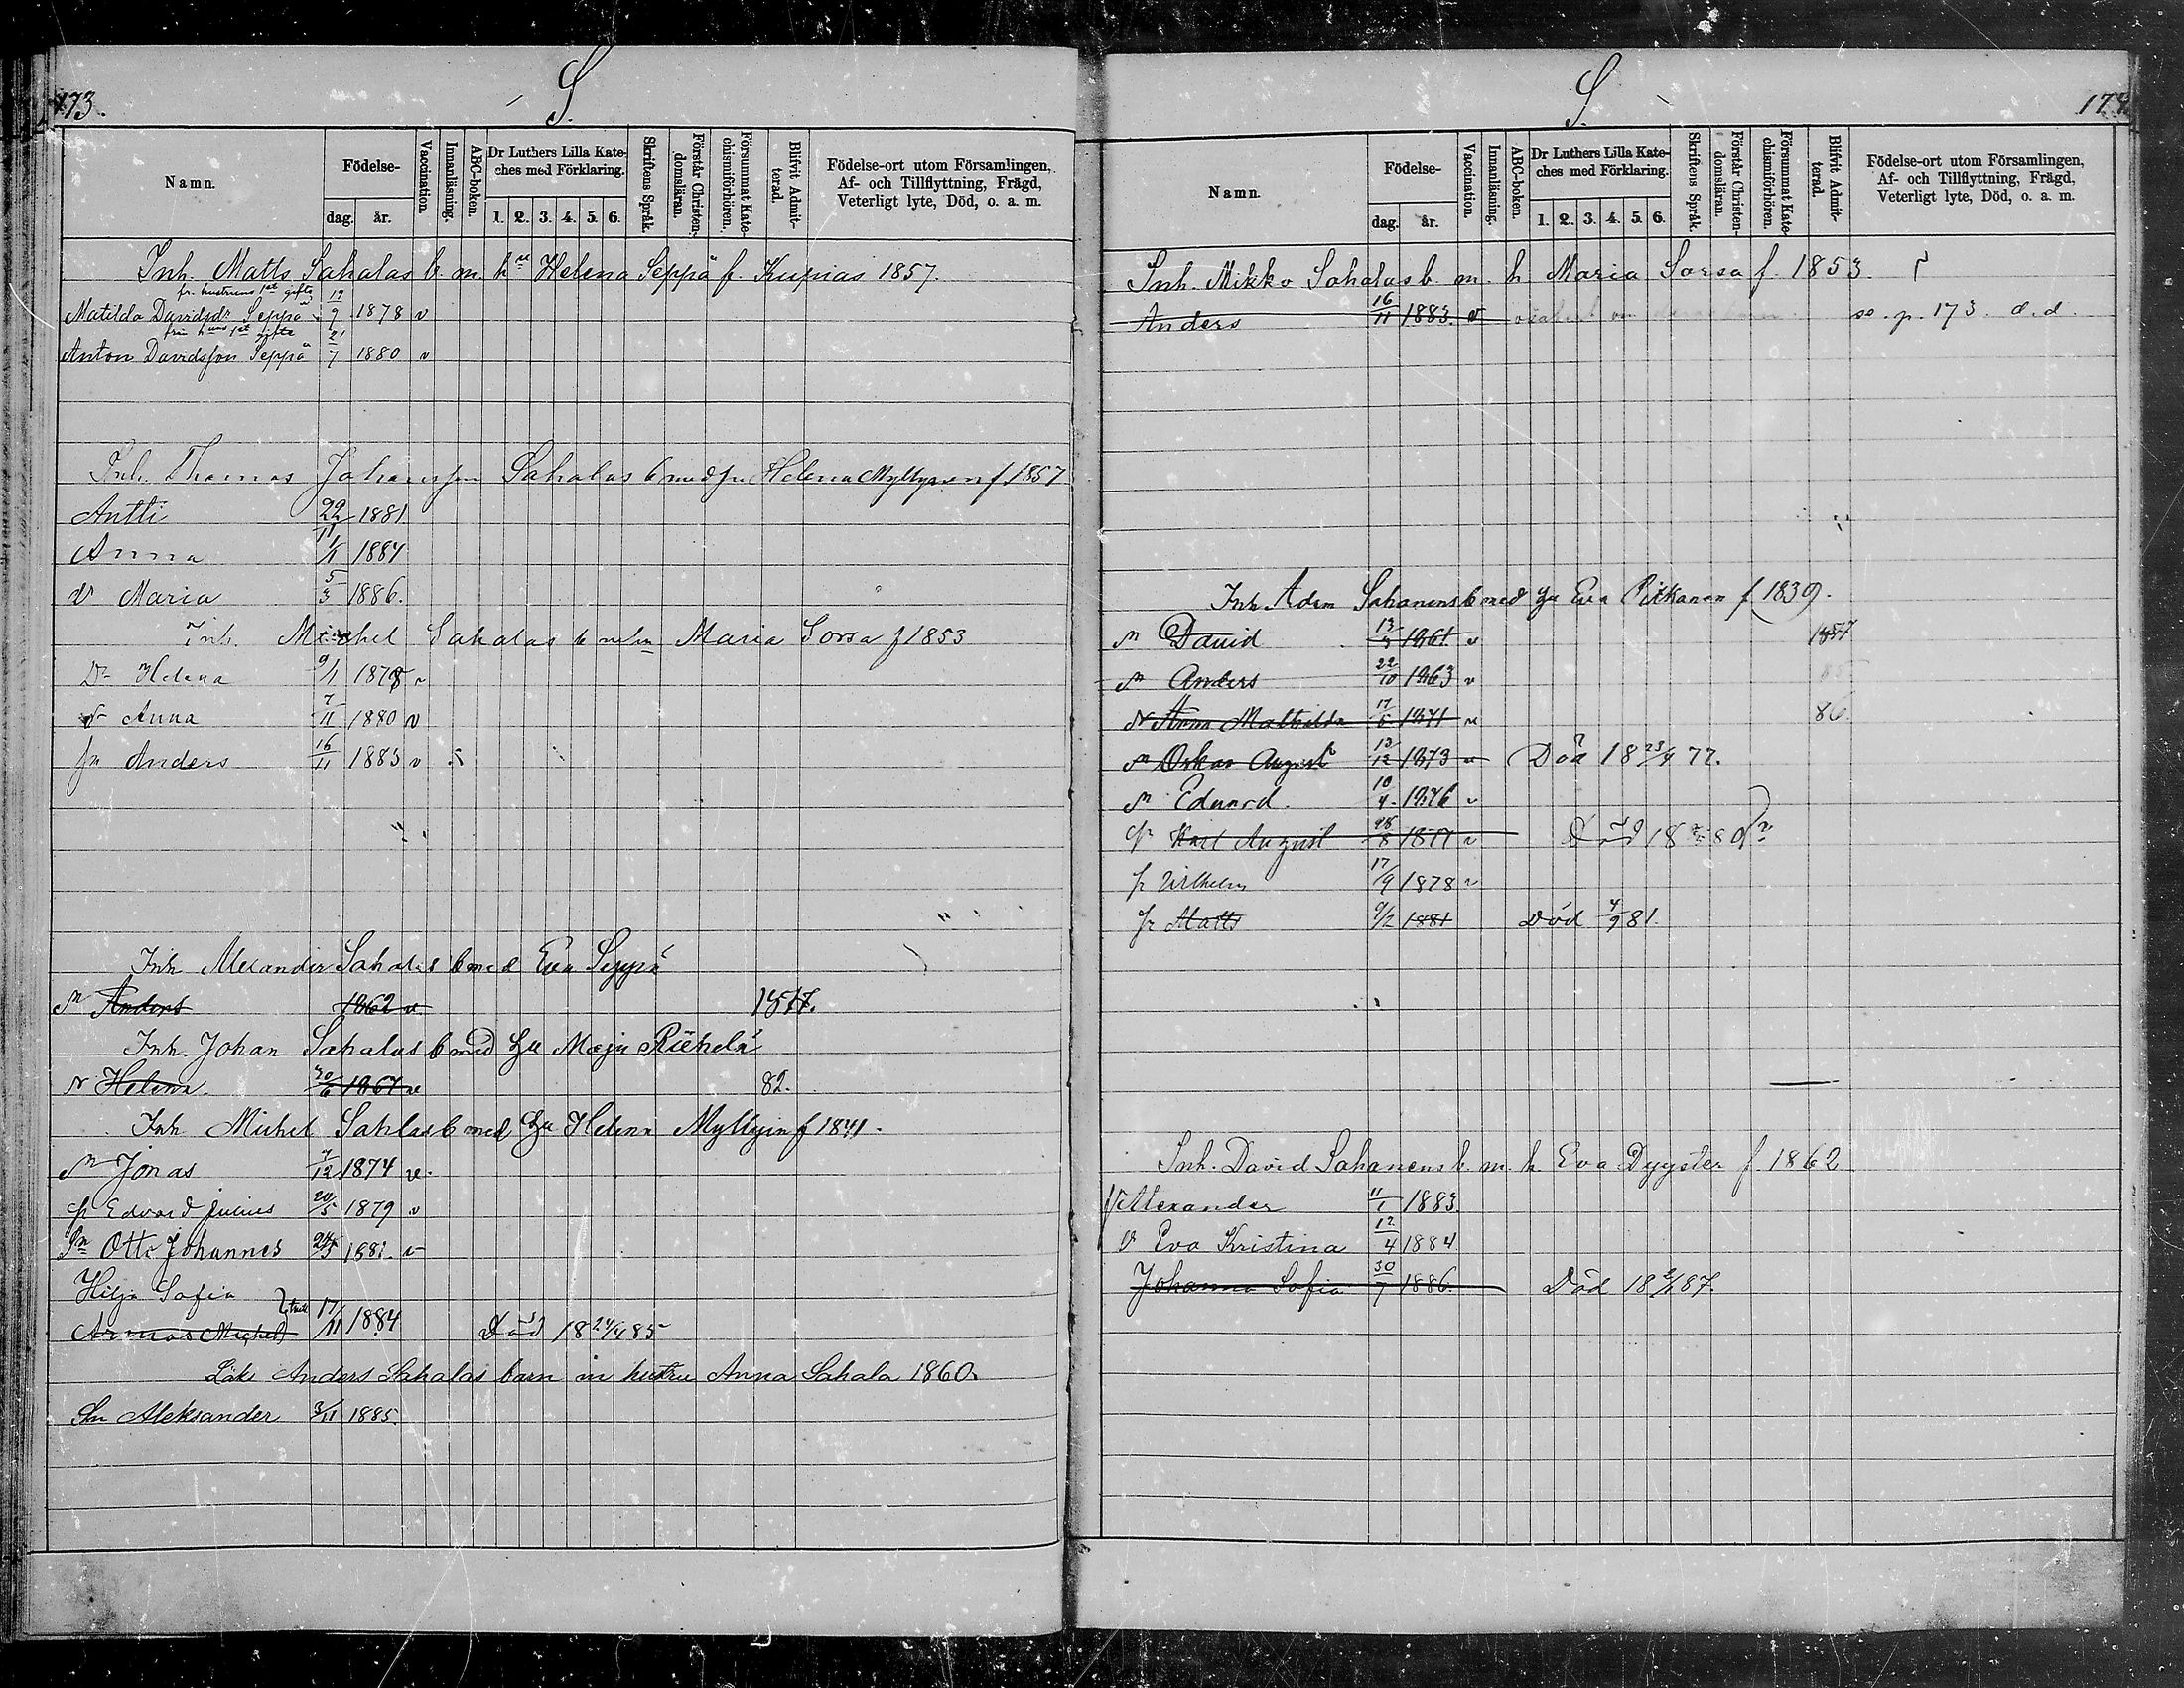 173.
S.
Namn.
Födelse-
dag.
år.
Vaccination.
Innanläsning.
ABC-boken.
Dr Luthers Lilla Kate-
ches med Förklaring.
1. 2. 3. 4. 5. 6.
Skriftens Språk.
Förstår Christen-
domsläran.
Försummat Kate-
chismiförhören.
Blifvit Admit-
terad.
Födelse-ort utom Församlingen,
Af- och Tillflyttning, Frägd,
Veterligt lyte, Död, o. a. m.
Inh. Matts Sahalas b. m. h Helena Seppä f. Kupias 1857.
fr. hustruns 1st gifte
Matilda Davidsdr Seppä 19/9 1878 v
från hns 1st gifte
Anton Davidsson Seppä 21/7 1880 v
Inh. Thomas Johansson Sahalas b med hu Helena Myllynen f. 1857
Antti 22/11 1881
Anna 1/11 1884
dr Maria 5/3 1886.
Inh. Michel Sahalas b m hu Maria Sorsa f 1853
Dr Helena 9/1 1878 v
dr Anna 7/11 1880 v
sn Anders 16/11 1883 v
Inh Alexander Sahalas b med Eva Seppä
sn Anders 1862 v 1877.
Inh. Johan Sahalas b med hu Maju Riekelä
dr Helena. 30/6 1867 v 82.
Inh Michel Sahlas b med hu Helena Myllyin f 1841.
sn Jonas 7/12 1874 v.
sn Edvard Julius 20/5 1879 v
Sn Otto Johannes 24/5 1881. v
Hilja Sofia
Armas Michel 17/11 1884 Död 18 24/4 85
Anders Sahalas barn m hustru Anna Sahala 1860.
Sn Aleksander 3/11 1885.
S.
174.
Namn.
Födelse-
dag.
år.
Vaccination.
Innanläsning.
ABC-boken.
Dr Luthers Lilla Kate-
ches med Förklaring.
1. 2. 3. 4. 5. 6.
Skriftens Språk.
Förstår Christen-
domsläran.
Försummat Kate-
chismiförhören.
Blifvit Admit-
terad.
Födelse-ort utom Församlingen,
Af- och Tillflyttning, Frägd,
Veterligt lyte, Död, o. a. m.
Inh. Mikko Sahalas b. m. h Maria Sorsa f. 1853.
Anders 16/11 1883. v se. p. 173 d.d.
Inh. Adam Sahanens b med hu Eva Pitkanen f 1839.
sn David 13/3 1861. v 1877
sn Anders 22/10 1863 v 85
dr Anna Mathilda 17/5 1871 v 86.
sn Oskar August 13/12 1873 v Död 18 23/4 77.
sn Eduard. 10/4. 1876 v
sn Karl August 26/8 1877 v
sn Wilhelm 17/9 1878 v
sn Matts 9/2 1881 Död 4/9 81.
Inh. David Sahanens b. m. h. Eva Dyyster f. 1862
sn Alexander 11/1 1883.
dr Eva Kristina 12/4 1884
Johanna Sofia 30/7 1886. Död 18 87.